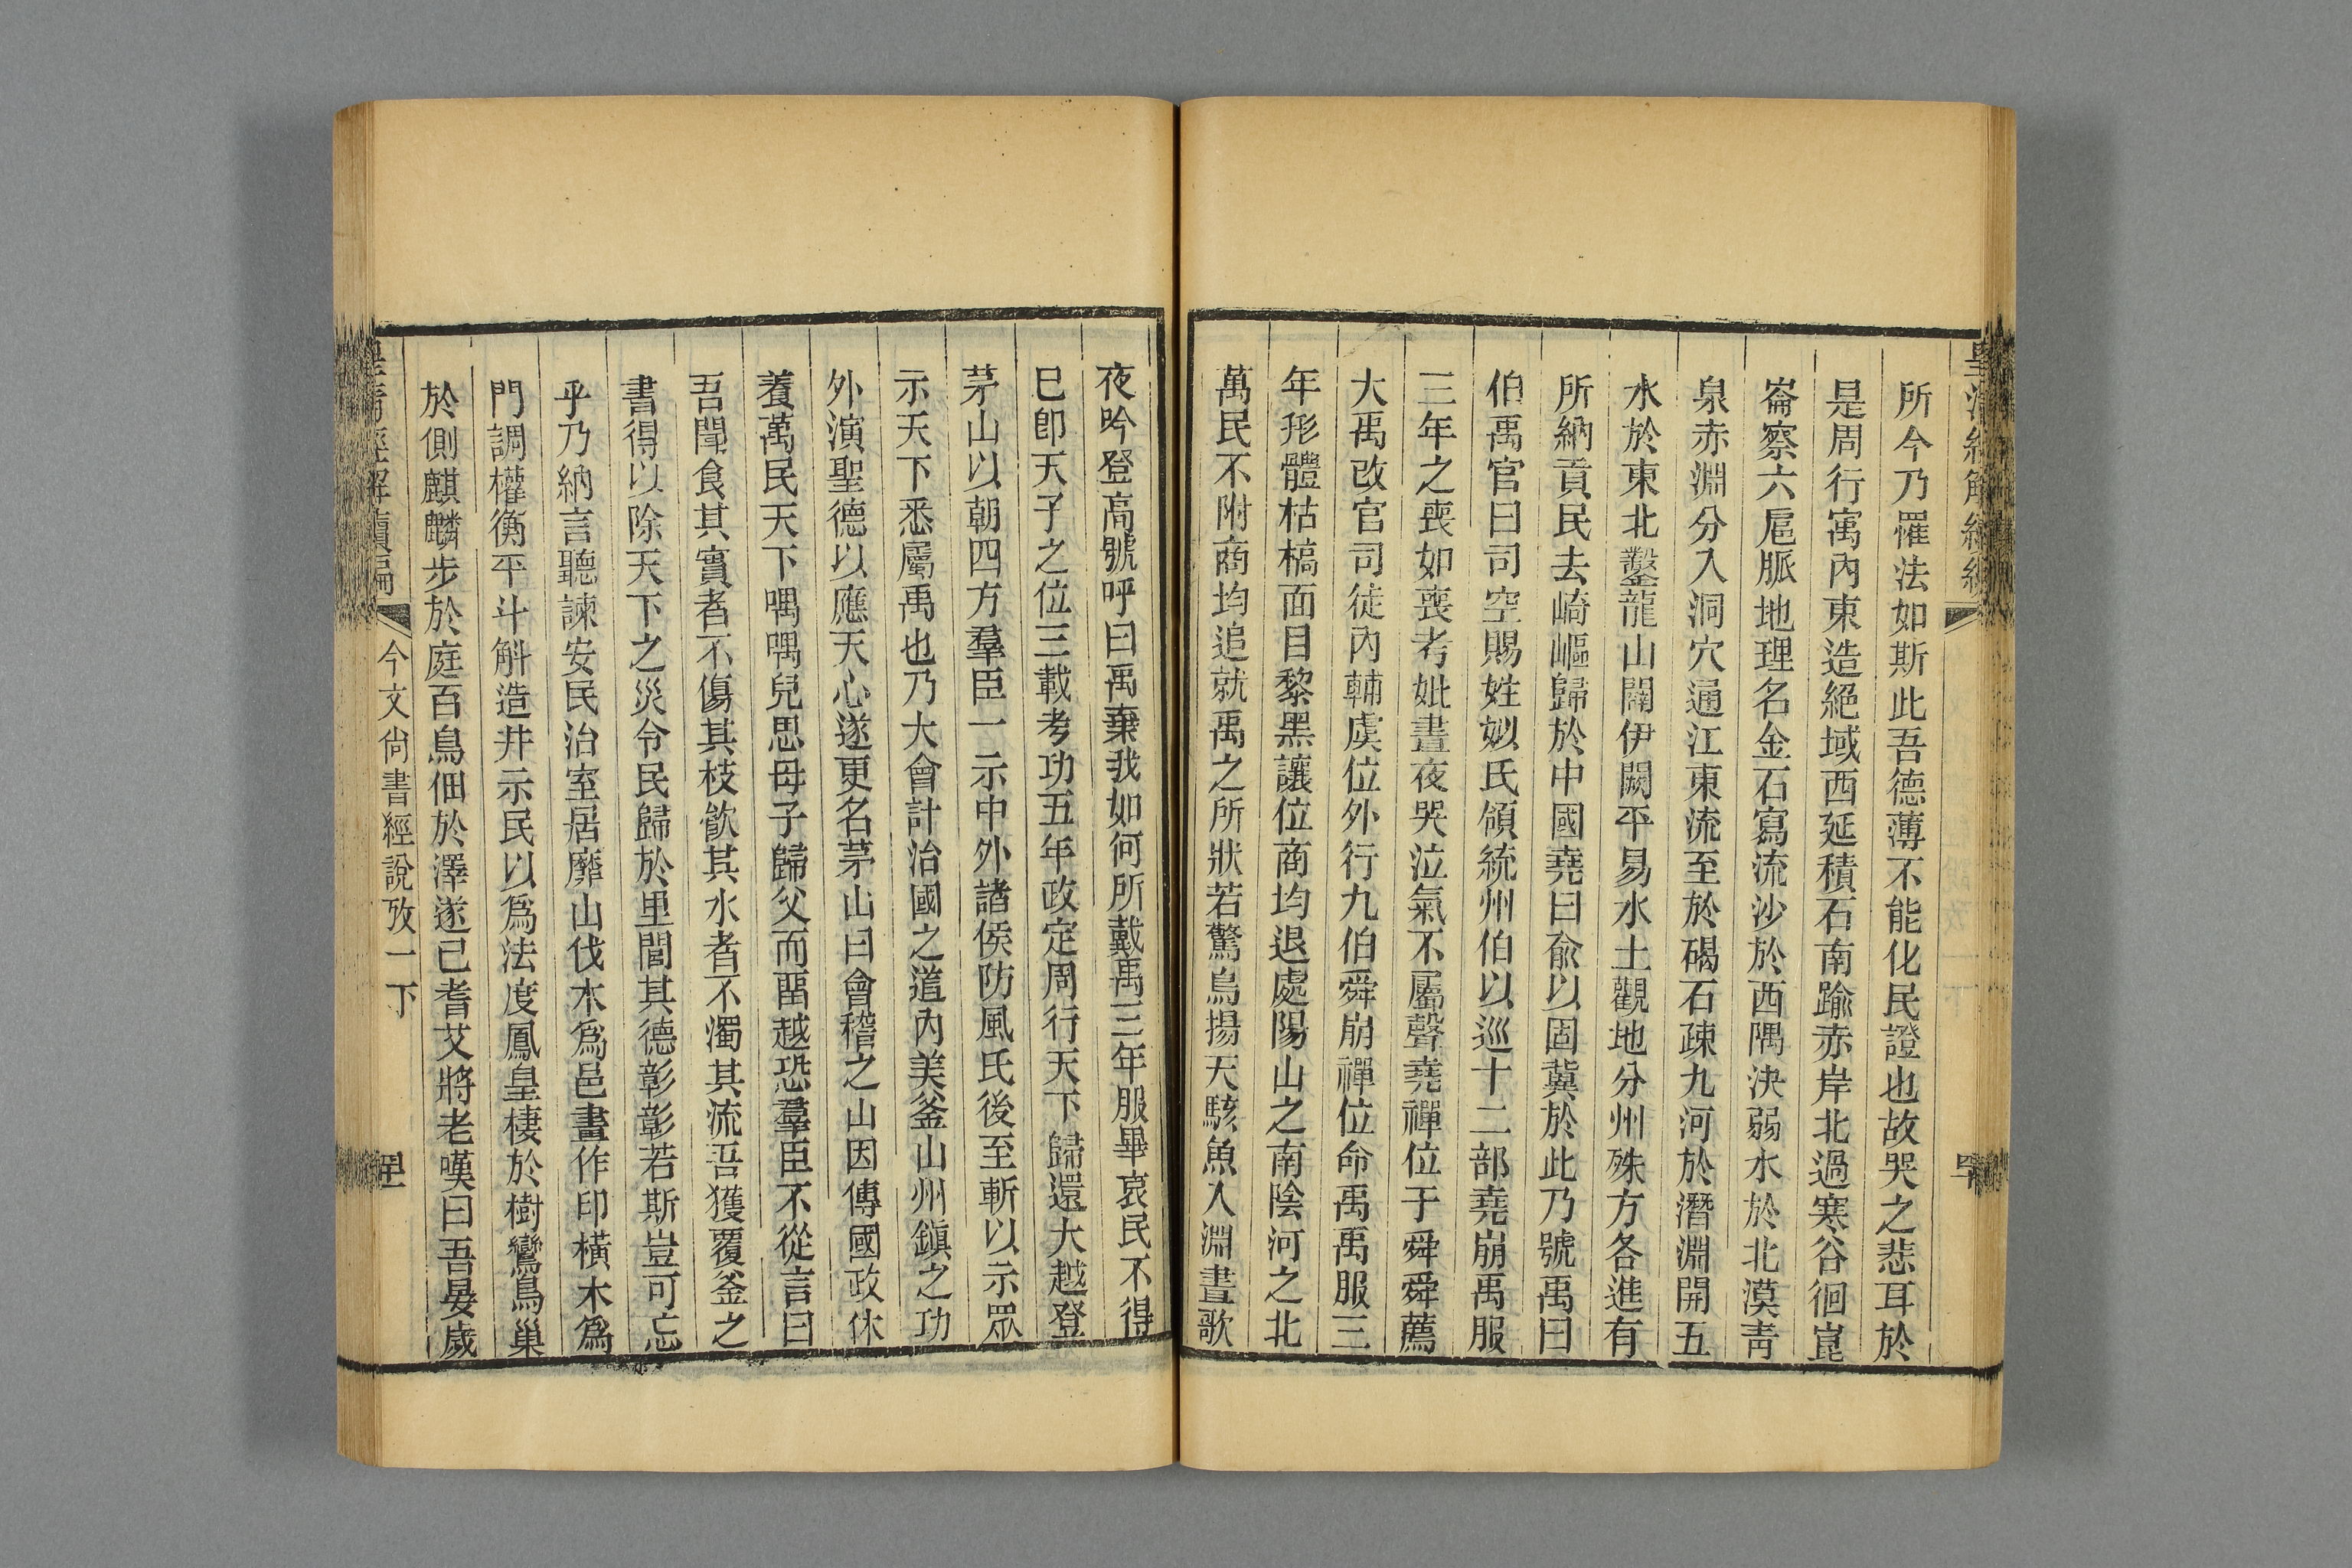 所今乃罹法如斯此吾德薄不能化民證也故哭之悲耳於
是周行寓內東造絕域西延積石南踰赤岸北過寒谷徊崑
崙察六扈脈地理名金石寫流沙於西隅決弱水於北漠青
泉赤淵分入洞穴通江東流至於碣石疎九河於潛淵開五
水於東北鑿龍山闢伊闕平易水土觀地分州殊方各進有
所納貢民去崎嶇歸於中國堯曰俞以固冀於此乃號禹曰
伯禹官曰司空賜姓姒氏領統州伯以巡十二部堯崩禹服
三年之喪如喪考妣晝夜哭泣氣不屬聲堯禪位于舜舜薦
大禹改官司徒內輔虞位外行九伯舜崩禪位命禹禹服三
年形體枯槁面目黎黑讓位商均退處陽山之南陰河之北
萬民不附商均追就禹之所狀若驚鳥揚天駭魚入淵晝歌
夜吟登高號呼曰禹棄我如何所戴禹三年服畢哀民不得
已卽天子之位三載考功五年政定周行天下歸還大越登
茅山以朝四方羣臣一示中外諸侯防風氏後至斬以示眾
示天下悉屬禹也乃大會計治國之道內美釜山州鎮之功
外演聖德以應天心遂更名茅山曰會稽之山因傳國政休
養萬民天下喁喁兒思母子歸父而畱越恐羣臣不從言曰
吾聞食其實者不傷其枝飲其水者不濁其流吾獲覆釜之
書得以除天下之災令民歸於里閭其德彰彰若斯豈可忘
乎乃納言聽諫安民治室居靡山伐木爲邑畫作印橫木爲
門調權衡平斗斛造井示民以爲法度鳳皇棲於樹鸞鳥巢
於側麒麟步於庭百鳥佃於澤遂已耆艾將老嘆曰吾晏歲
皇清經解續編
今文尚書經說攷一下